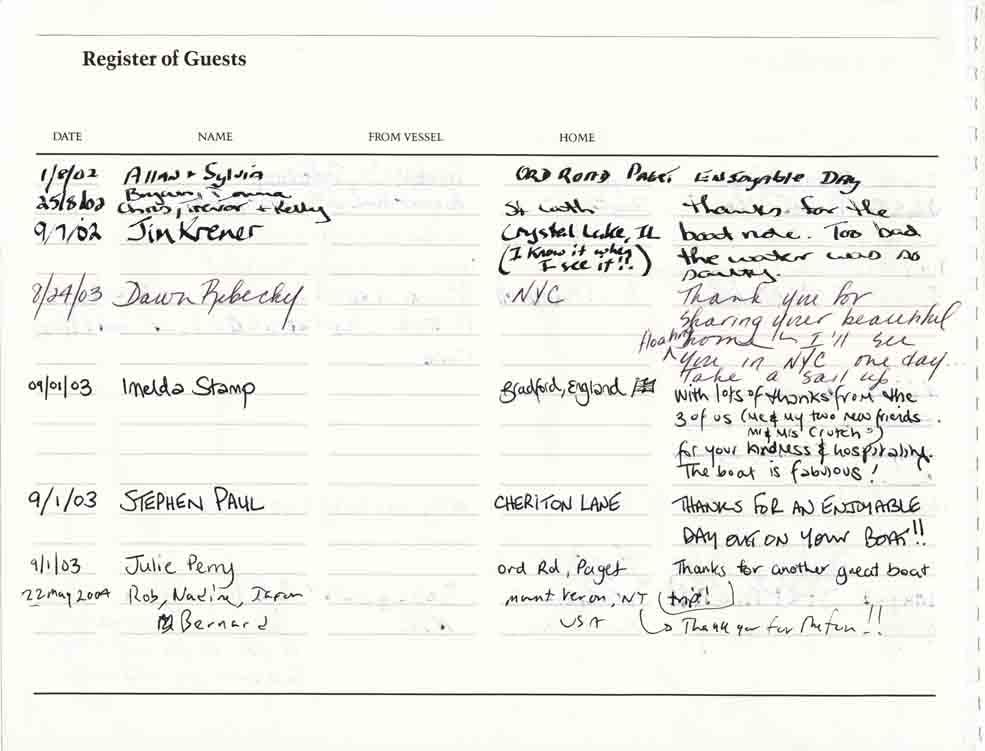 Register of Guests
DATE NAME FROM VESSEL HOME
1/8/02 Allan + Sylvia ORD ROAD PAGET ENJOYABLE DAY
25/8/02 Chris, Trevor + Kelly St Cath thanks for the
9/7/02 Jim Krener Crystal Lake, IL boat ride. Too bad
(I know it when the water was so
I see it!!) salty.
8/24/03 Dawn Rebecky NYC Thank you for
sharing your beautiful
floating home I'll see
you in NYC one day...
Take a sail up...
09/01/03 Imelda Stamp Bradford, England With lots of thanks from the
3 of us (Me & My two new friends
Mr & Mrs Crutch)
for your kindness & hospitality.
The boat is fabulous!
9/1/03 STEPHEN PAUL CHERITON LANE THANKS FOR AN ENJOYABLE
DAY OUT ON YOUR BOAT!!
9/1/03 Julie Perry ord Rd, Paget Thanks for another great boat
22 May 2004 Rob, Nadine, trip!
Bernard USA Thank you for the fun!!